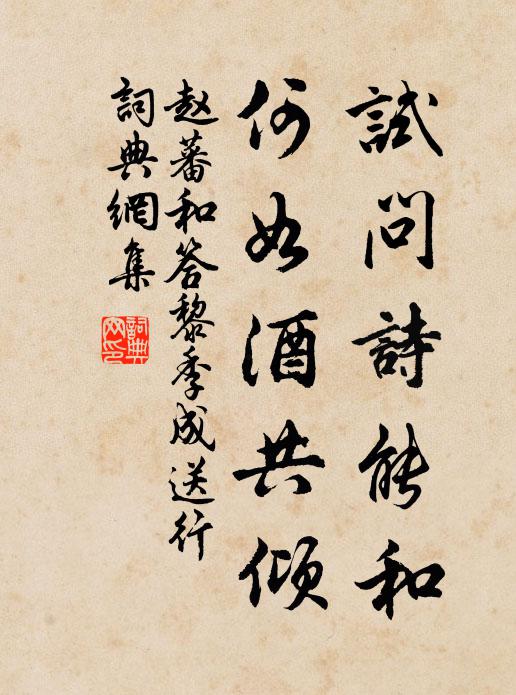 試问詩能和
何如酒共倾
赵蕃和答黎季成送行
詞典網集
詞典网印